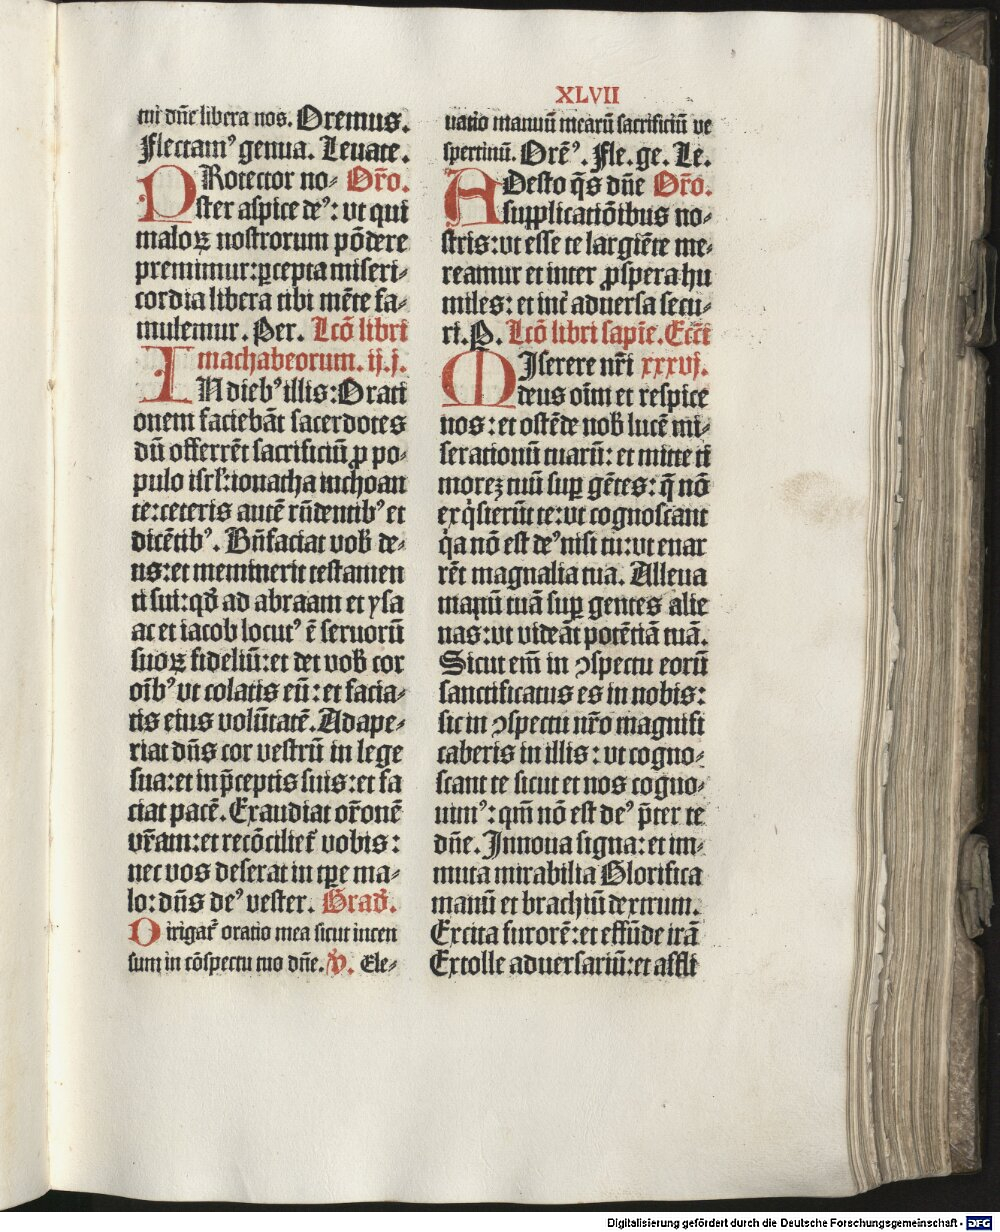 XLVII
tui dn̄e libera nos. Oremus.
Flectamꝰ genua. Leuate.
PRotector no⸗ Or̄o.
ster aspice deꝰ: vt qui
maloꝝ nostrorum põdere
premimur: ꝑcepta miseri⸗
cordia libera tibi mēte fa⸗
mulemur. Per. Lcō libri
machabeorum. ij. j.
IN diebꝰ illis: Orati
onem faciebāt sacerdotes
dū offerrēt sacrificiū ꝓ po⸗
pulo isrl̓: ionatha inchoan
te: ceteris autē rn̄dentibꝰ et
dicētibꝰ. Bn̄faciat vob̓ de⸗
us: et meminerit testamen
ti sui: qd̓ ad abraam et ysa
ac et iacob locutꝰ ē seruorū
suoꝝ fideliū: et det vob̓ cor
oīb̓ꝰ vt colatis eū: et facia⸗
tis eius volūtatē. Adape⸗
riat dn̄s cor vestrū in lege
sua: et in p̄ceptis suis: et fa
ciat pacē. Exaudiat or̄onē
vr̄am: et recōciliet᷑ vobis:
nec vos deserat in tꝑe ma⸗
lo: dn̄s deꝰ vester. Grad̓.
Dirigat᷑ oratio mea sicut incen
sum in cōspectu tuo dn̄e. ℣. Ele⸗
uatio manuū mearū sacrificiū ve
spertinū. Orē ꝰ. Fle. ge. Le.
ADesto q̄s dn̄e Or̄o.
supplicatiōibus no⸗
stris: vt esse te largiēte me⸗
reamur et inter ꝓspera hu
miles: et int᷑ aduersa secu⸗
ri. P. Lcō libri sapīe. Ecc̄i
MIserere nr̄i xxxvj.
deus oīm et respice
nos: et ostēde nob̓ lucē mi⸗
serationū tuarū: et mitte ti
morez tuū suꝑ gētes: q̄ nō
exq̇sierūt te: vt cognoscant
q̇a nō est deꝰ nisi tu: vt enar
rēt magnalia tua. Alleua
manū tuā suꝑ gentes alie
nas: vt videāt potētiā tuā.
Sicut em̄ in ꝯspectu eorū
sanctificatus es in nobis:
sic in ꝯspectu nr̄o magnifi
caberis in illis: vt cogno⸗
scant te sicut et nos cogno⸗
uimꝰ: qm̄ nō est deꝰ p̄ter te
dn̄e. Innoua signa: et im⸗
muta mirabilia Glorifica
manū et brachiū dextrum.
Excita furorē: et effūde irā
Extolle aduersariū: et affli
Digitalisierung gefördert durch die Deutsche Forschungsgemeinschaft - DFG